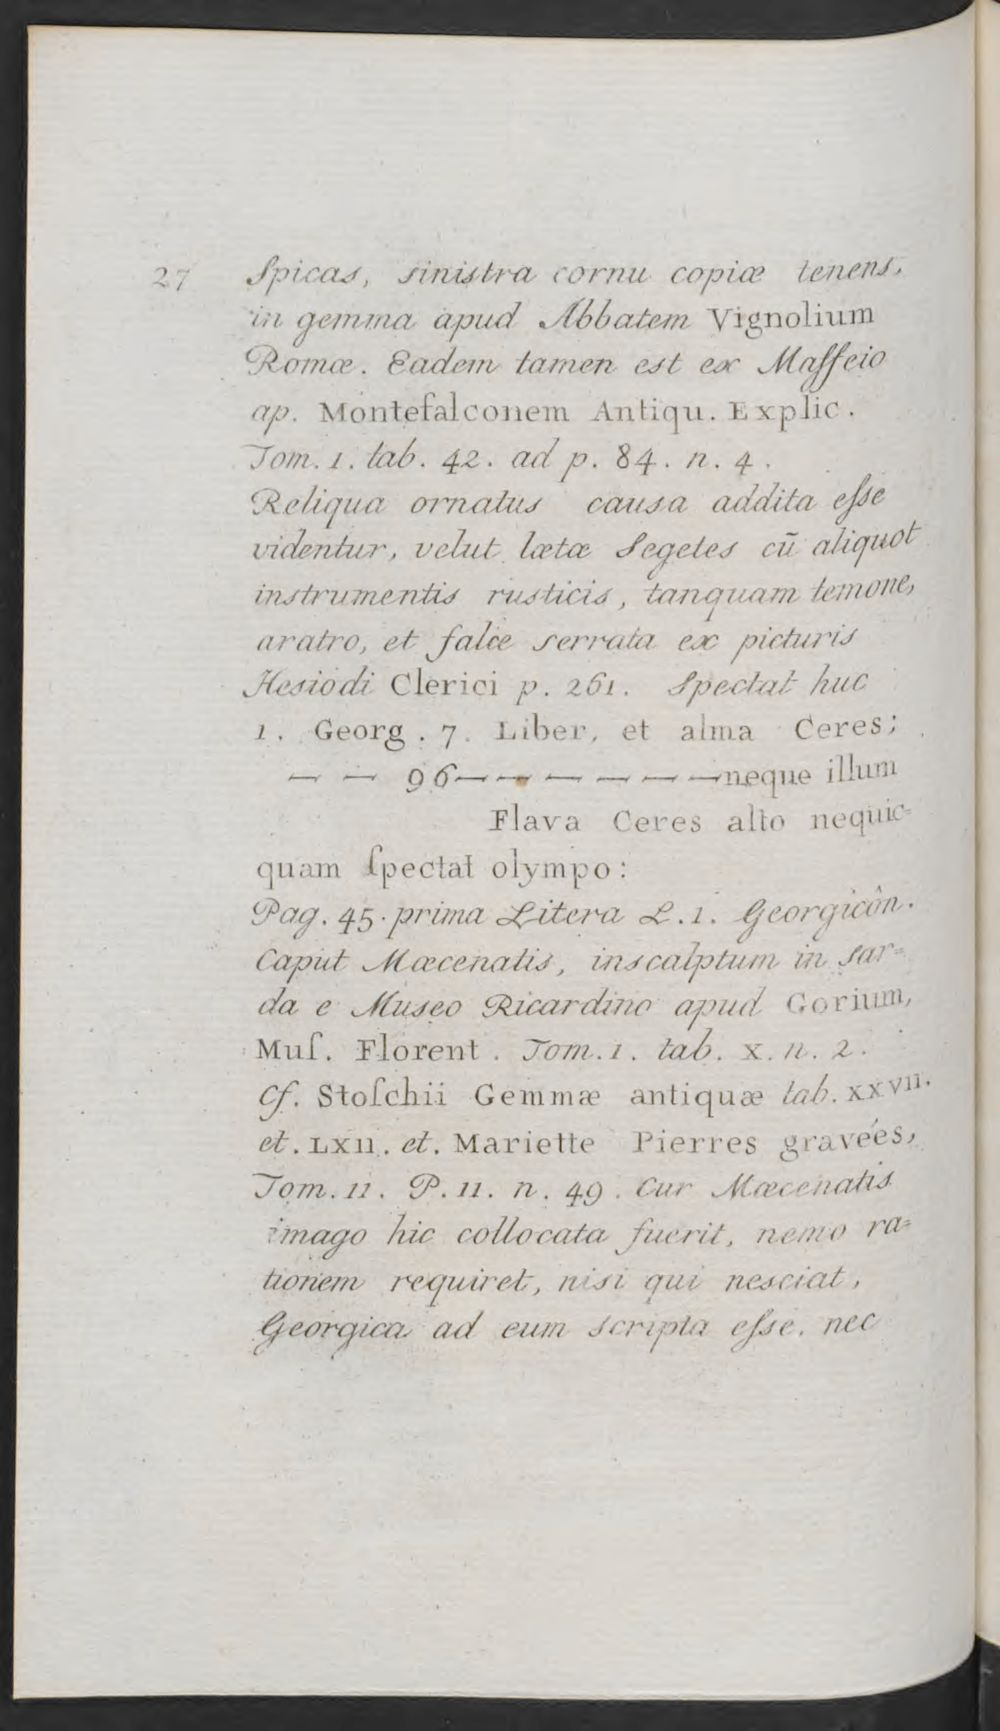 27 Spicas, sinistra cornu copiæ tenens,
in gemma apud Abbatem Vignolium
Romæ. Eadem tamen est ex Maffeio
ap. Montefalconem Antiqu. Explic.
Tom. 1. tab. 42. ad p. 84. n. 4.
Reliqua ornatus causa addita eſse
videntur, velut lætæ Segetes cū aliquot
instrumentis rusticis, tanquam temone,
aratro, et falce serrata ex picturis
Hesiodi Clerici p. 261. Spectat huc
1. Georg. 7. Liber, et alma Ceres;
— — 96 — — — — — — neque illum
Flava Ceres alto nequic=
quam ſpectat olympo:
Pag. 45. prima Litera L. 1. Georgicôn.
Caput Mæcenatis, inscalptum in sar=
da e Museo Ricardino apud Gorium,
Muſ. Florent. Tom. 1. tab. X. n. 2.
Cf. Stoſchii Gemmæ antiquæ tab. XXVII.
et. LXII. et. Mariette Pierres gravées,
Tom. 11. P. 11. n. 49. Cur Mæcenatis
imago hic collocata fuerit, nemo ra=
tionem requiret, nisi qui nesciat,
Georgica ad eum scripta eſse. nec